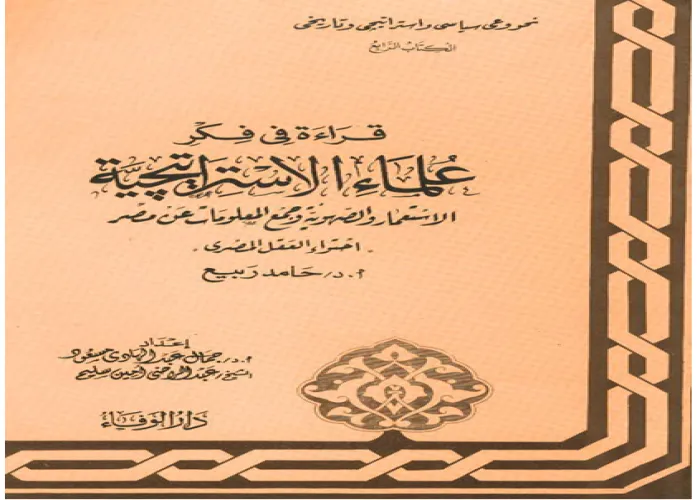 نحو وعى سياسى واستراتيجى وتاريخى
الكتاب الرابع
قراءة فى فكر
علماء الاستراتيجية
الاستعمار والصهيونية وجمع المعلومات عن مصر
- احتواء العقل المصرى -
أ.د/ حامد ربيع
إعداد
أ.د/ جمال عبد الهادى مسعود
الشيخ/ عبد الراضى أمين سليم
دار الوفاء